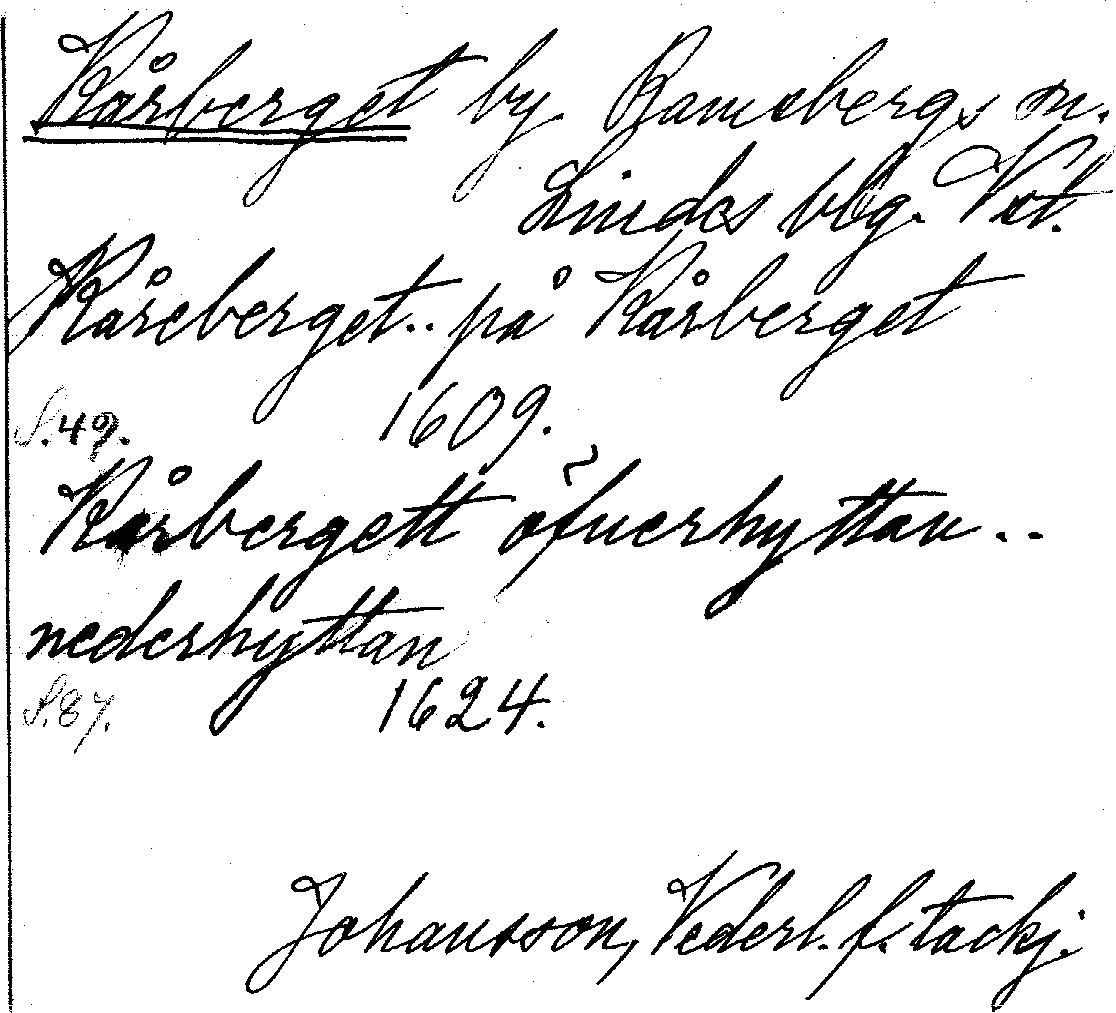 Kårberget by Ramsbergs sn.
Lindes blg. Vst.
Kåreberget.. på Kårberget
S.49. 1609.
Kårbergett öfuerhyttan ..
nederhyttan
S.87. 1624.
Johansson, Vederl. f. tackj.